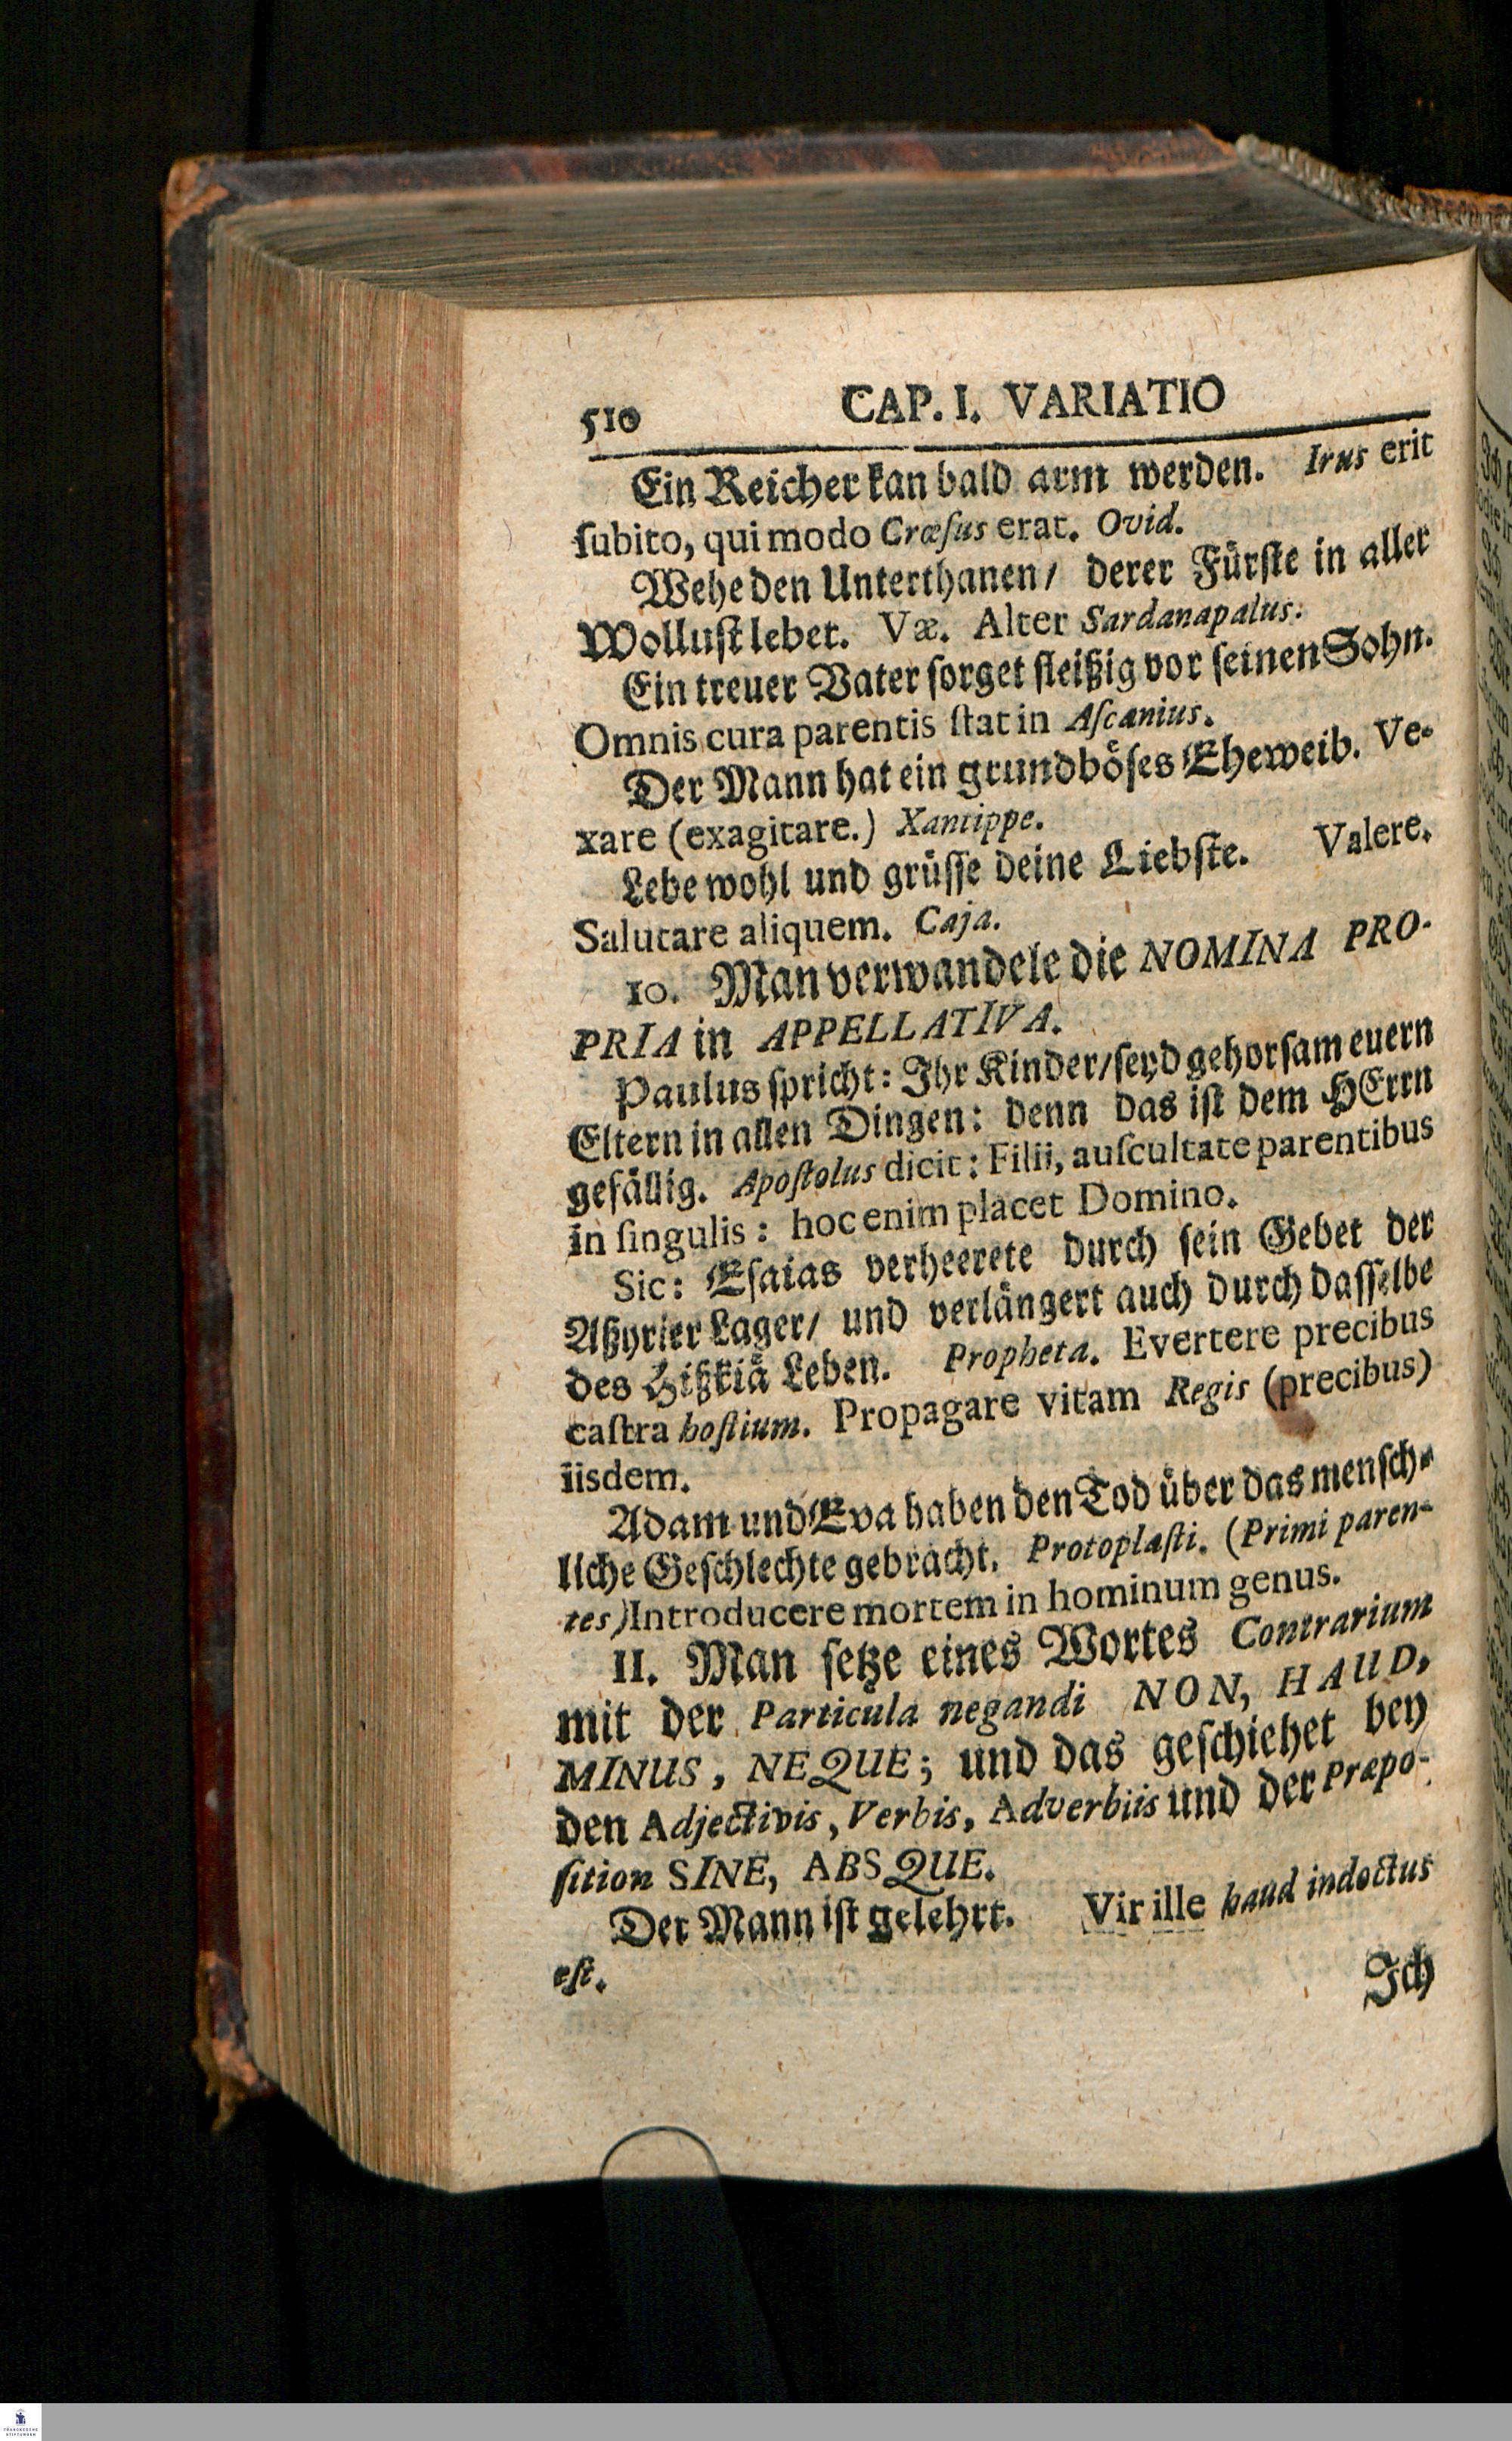 510 CAP. I. VARIATIO
Ein Reicher kan bald arm werden. Irus erit
ſubito, qui modo Cræſus erat. Ovid.
Wehe den Unterthanen/ derer Fürſte in aller
Wolluſt lebet. Væ. Alter Sardanapalus.
Ein treuer Vater ſorget fleißig vor ſeinen Sohn.
Omnis cura parentis ſtat in Aſcanius.
Der Mann hat ein grundböſes Eheweib. Ve-
xare (exagitare.) Xantippe.
Lebe wohl und grüſſe deine Liebſte. Valere.
Salutare aliquem. Caja.
10. Man verwandele die NOMINA PRO-
PRIA in APPELLATIVA.
Paulus ſpricht: Ihr Kinder/ ſeyd gehorſam euern
Eltern in allen Dingen: denn das iſt dem HErrn
gefällig. Apoſtolus dicit: Filii, auſcultate parentibus
in ſingulis: hoc enim placet Domino.
Sic: Eſaias verheerete durch ſein Gebet der
Aßyrier Lager/ und verlängert auch durch daſſelbe
des Hißkiä Leben. Propheta. Evertere precibus
caſtra hoſtium. Propagare vitam Regis (precibus)
iisdem.
Adam und Eva haben den Tod über das menſch-
liche Geſchlechte gebracht. Protoplaſti. (Primi paren-
tes) Introducere mortem in hominum genus.
11. Man ſetze eines Wortes Contrarium
mit der Particula negandi NON, HAUD,
MINUS, NEQUE; und das geſchiehet bey
den Adjectivis, Verbis, Adverbiis und der Præpo-
ſition SINE, ABSQUE.
Der Mann iſt gelehrt. Vir ille haud indoctus
eſt.
Ich
FRANCKESCHE
STIFTUNGEN